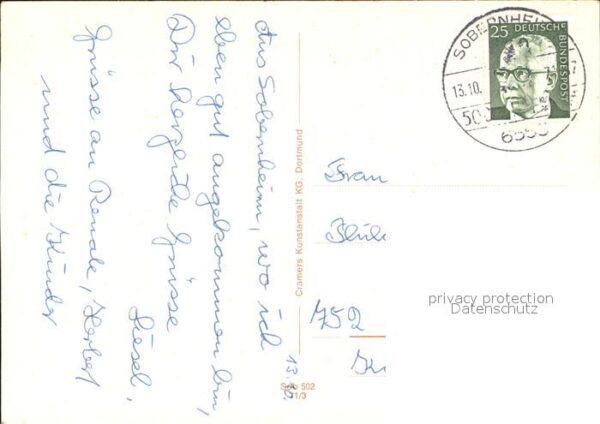 Aus Sobernheim, wo ich
eben gut angekommen bin,
Dir herzliche Grüsse
Liesel.
Grüsse an Renate, Herbert
und die Kinder
13.10.
Cramers Kunstanstalt KG. Dortmund
502
1/3
SOBERNHEIM
13.10.
25
DEUTSCHE
BUNDESPOST
Frau
752
privacy protection
Datenschutz